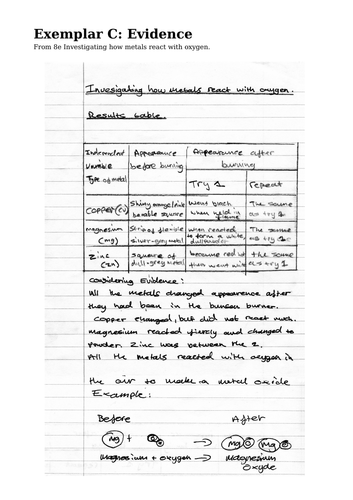 Exemplar C: Evidence
From 8e Investigating how metals react with oxygen.
Invesigating how metals react with oxygen.
Results table.
Independant Variable Type of metal
Appearance before burning
Appearance after burning
Try 1
repeat
COPPER (Cu)
Shiny orange/pink bendable square
Went black when held in flame
The same as try 1
Magnesium (mg)
Strip of flexible silver-grey metal
when reacted to form a white
The same as try 1
Zinc (Zn)
square of dull-grey metal
became red hot then went white
the same as try 1
Considering Evidence:
All the metals changed appearence after
they had been in the bunsen burner.
Copper changed, but did not react much.
Magnesium reacted fiercly and changed to
Powder. Zinc was between the 2.
All the metals reacted with oxygen in
the air to make a metal oxide
Example:
Before After
Mg + O O → Mg O Mg O
Magnesium + oxygen → Magnesium
Oxyde